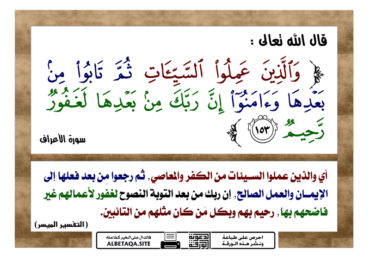 قال الله تعالى :
﴿ وَٱلَّذِينَ عَمِلُوا۟ ٱلسَّيِّـَٔاتِ ثُمَّ تَابُوا۟ مِنۢ
بَعْدِهَا وَءَامَنُوٓا۟ إِنَّ رَبَّكَ مِنۢ بَعْدِهَا لَغَفُورٌ
رَّحِيمٌ ١٥٣ ﴾
سورة الأعراف
أي والذين عملوا السيئات من الكفر والمعاصي، ثم رجعوا من بعد فعلها إلى
الإيمان والعمل الصالح، إن ربك من بعد التوبة النصوح لغفور لأعمالهم غير
فاضحهم بها، رحيم بهم وبكل من كان مثلهم من التائبين.
( التفسير الميسر )
احرص على طباعة
ونشر هذه الورقة
ALBETAQA.SITE